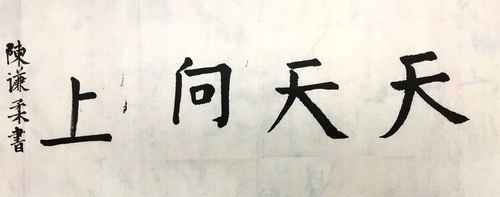 天天问上
陳谦柔書